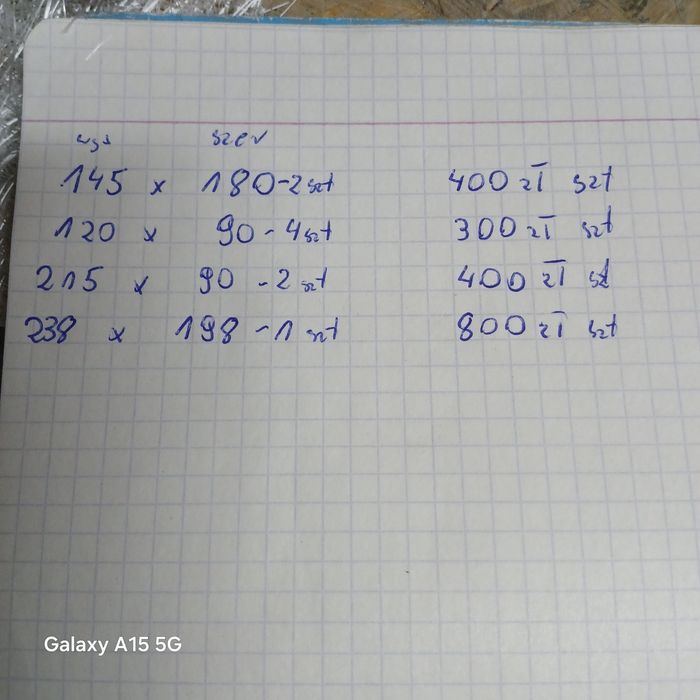 wys szer
145 x 180 - 2 szt 400 zł szt
120 x 90 - 4 szt 300 zł szt
215 x 90 - 2 szt 400 zł szt
238 x 198 - 1 szt 800 zł szt
Galaxy A15 5G